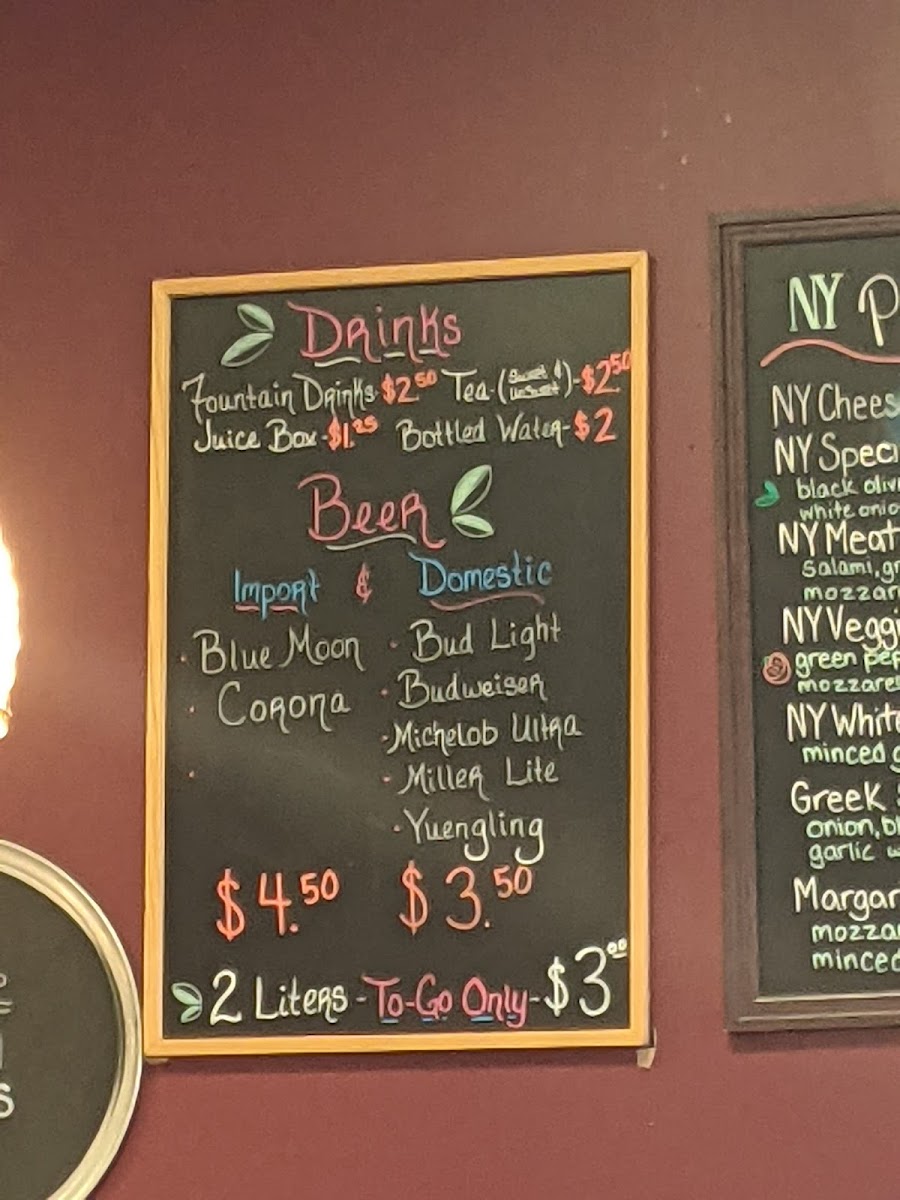 Drinks
Fountain Drinks-$2.50 Tea-(Sweet & UnSweet)-$2.50
Juice Box-$1.25 Bottled Water-$2
Beer
Import & Domestic
· Blue Moon
· Corona
·
· Bud Light
· Budweiser
· Michelob Ultra
· Miller Lite
· Yuengling
$4.50 $3.50
2 Liters - To-Go Only - $3.00
NY P
NY Chees
NY Speci
black oliv
white onio
NY Meat
Salami, gr
mozzar
NY Veggi
green pep
mozzare
NY White
minced g
Greek
onion, bl
garlic w
Margar
mozza
minced
S